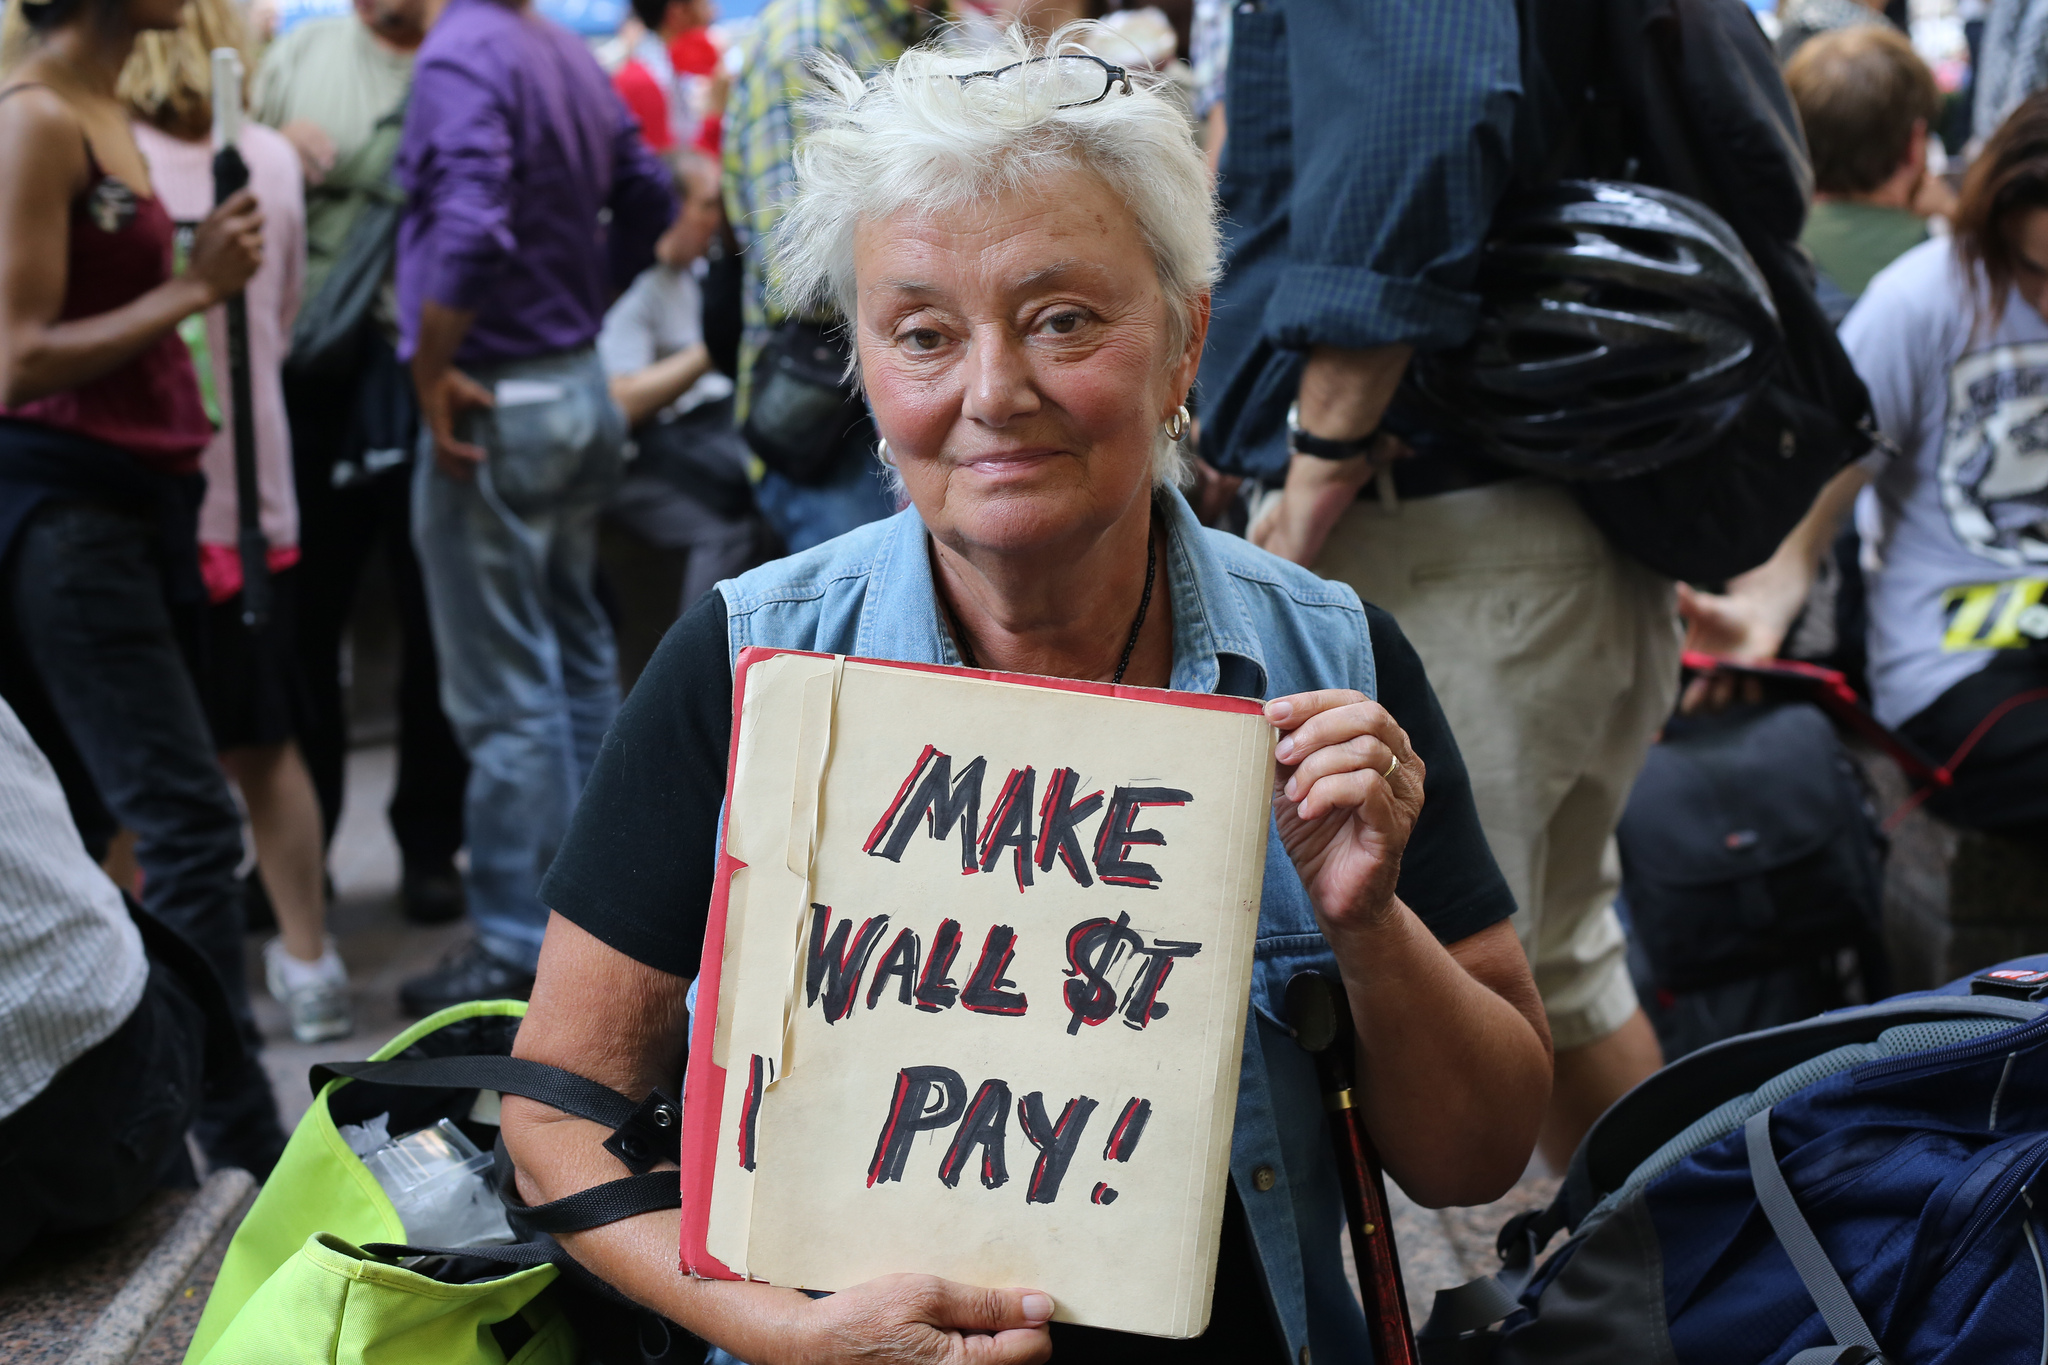 MAKE
WALL $T.
PAY!